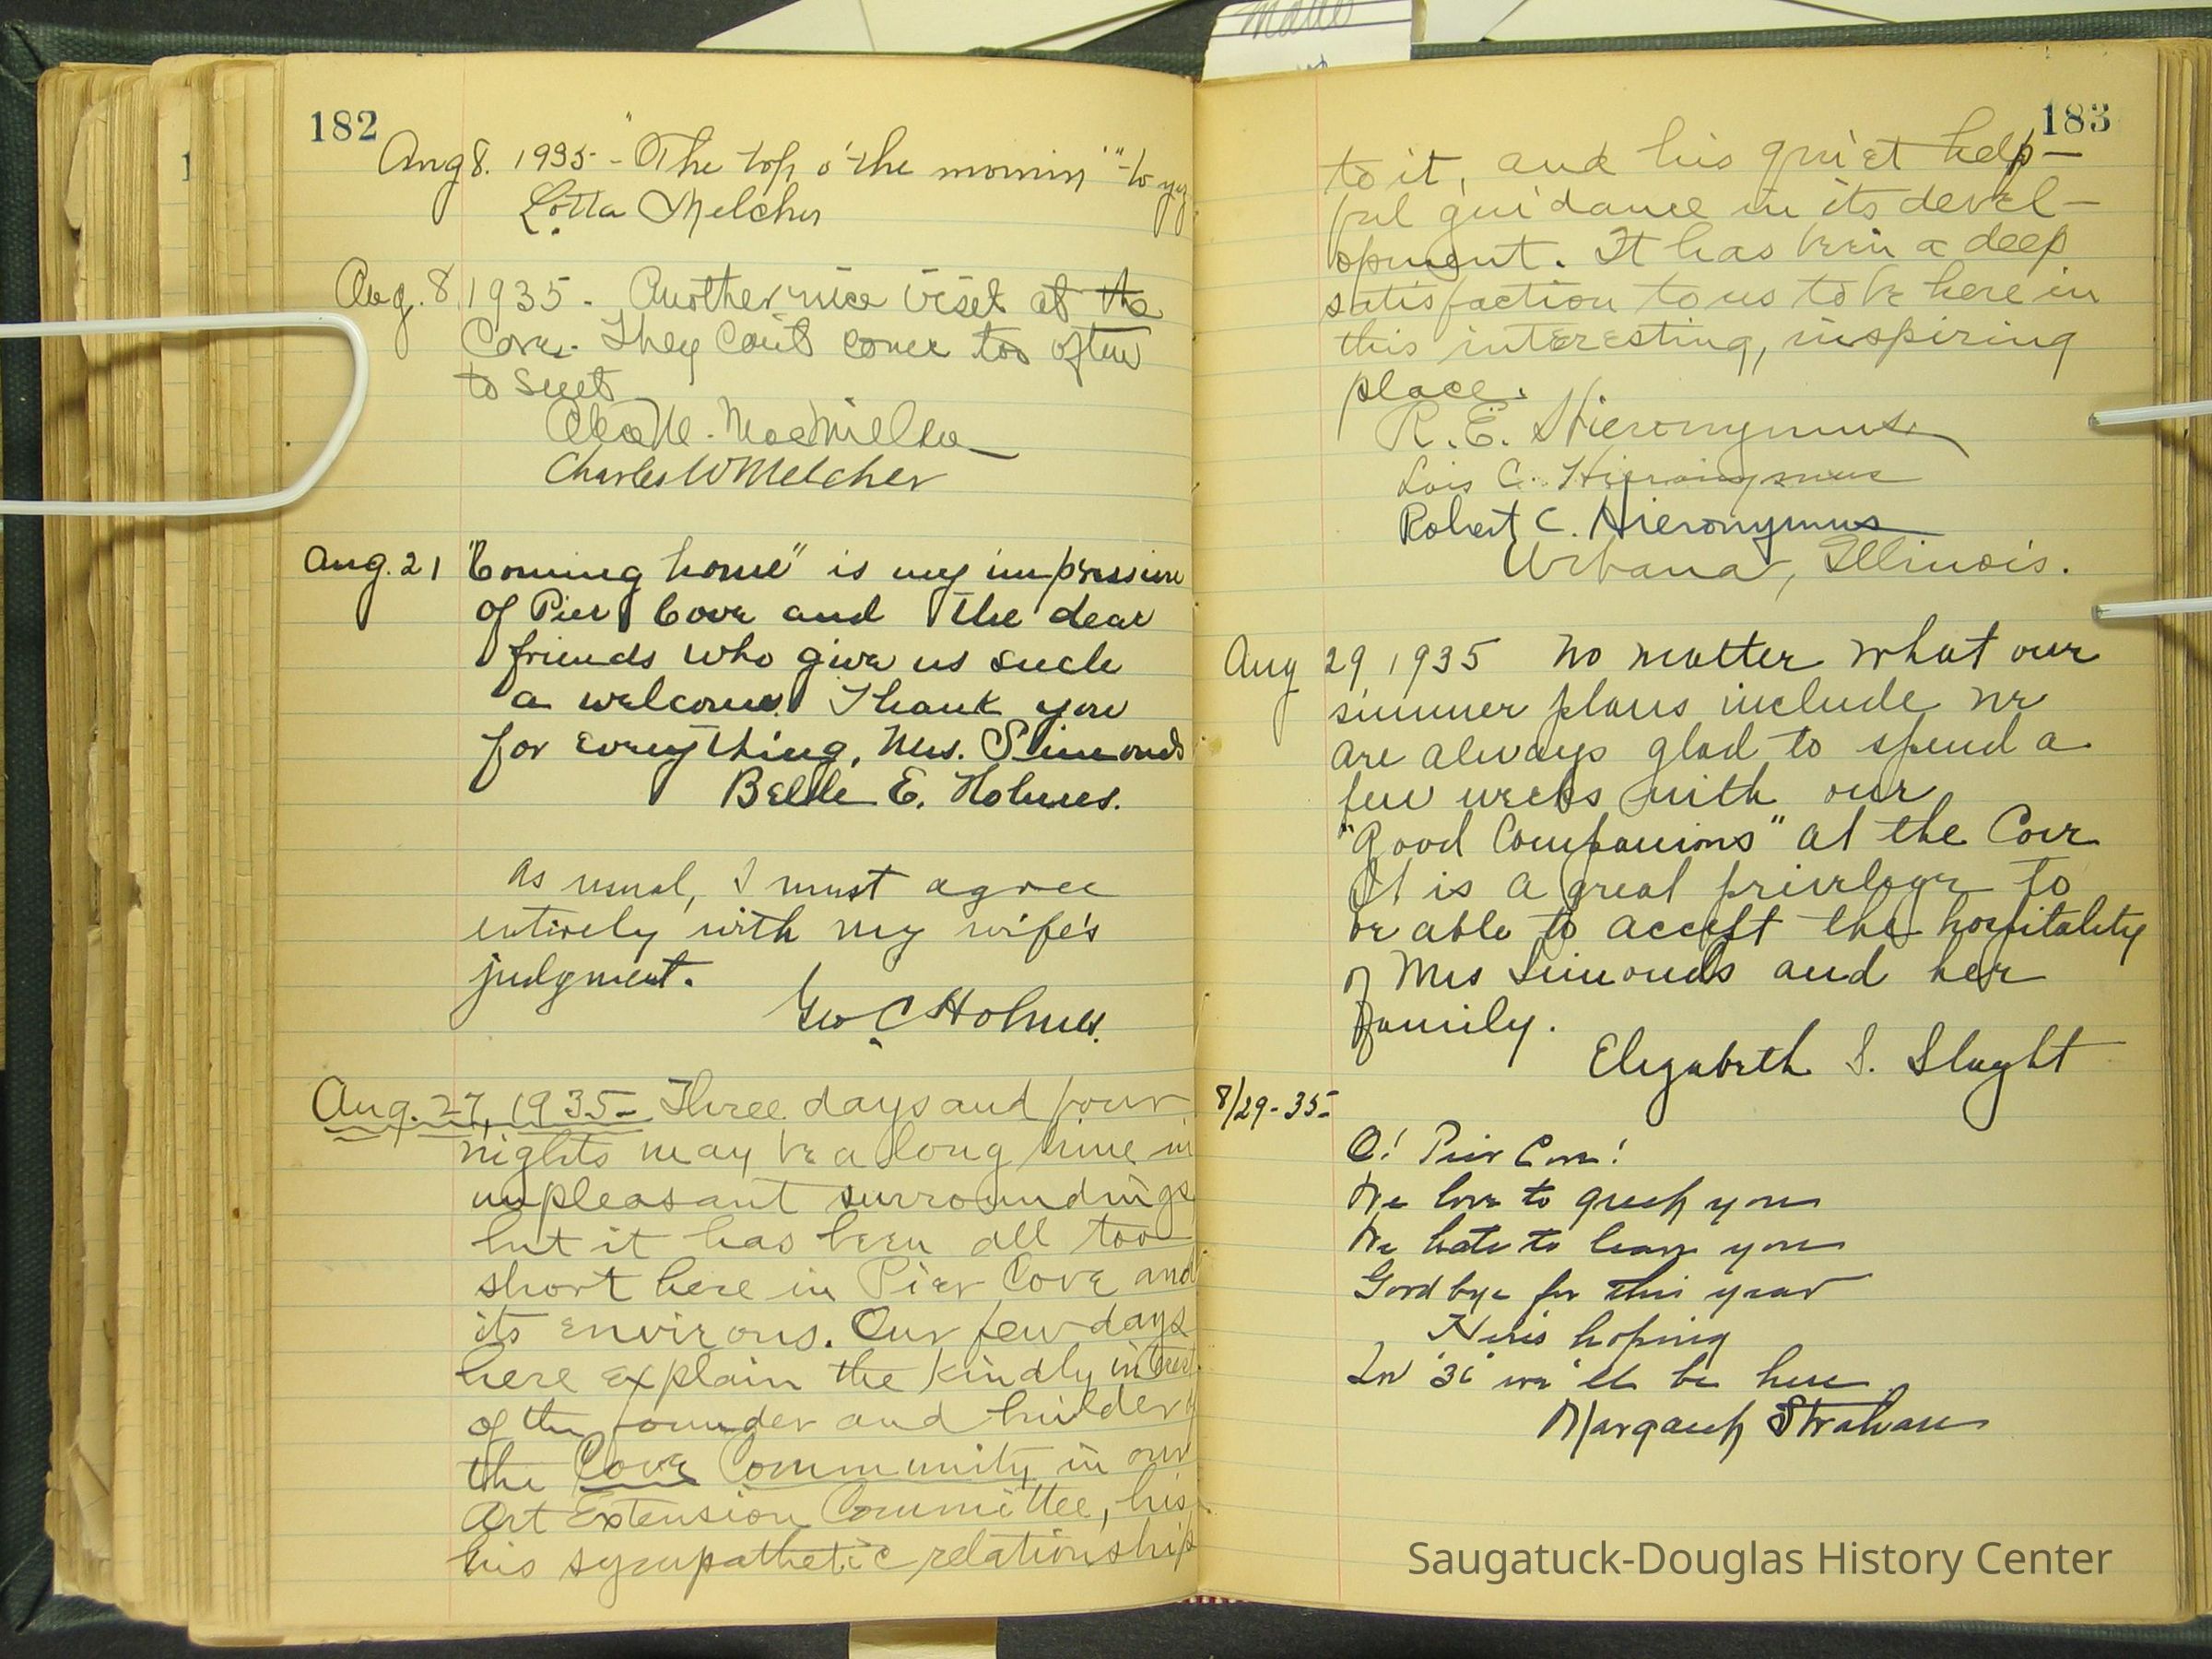 182
Aug 8. 1935 - "The top o' the mornin'" - to yez
Lotta Melcher
Aug. 8, 1935 - Another nice visit at the
Cove. They can't come too often
to suit
MacMillan
Charles W Melcher
Aug. 21 "Coming home" is my impression
of Pier Cove and the dear
friends who give us such
a welcome. Thank you
for everything, Mrs. Simonds
Belle E. Holmes.
As usual, I must agree
entirely with my wife's
judgment.
Geo C Holmes.
Aug. 27, 1935 - Three days and four
nights may be a long time in
unpleasant surroundings
but it has been all too
short here in Pier Cove and
its environs. Our few days
here explain the kindly interest
of the founder and builder of
the Cove Community in our
Art Extension Committee, his
his sympathetic relationship
183
to it, and his quiet help-
ful guidance in its devel-
opment. It has been a deep
satisfaction to us to be here in
this interesting, inspiring
place.
R. E. Hieronymus.
Lois C. Hieronymus
Robert C. Hieronymus
Urbana, Illinois.
Aug 29 1935 No matter what our
summer plans include we
are always glad to spend a
few weeks with our
"Good Companions" at the Cove
It is a great privilege to
be able to accept the hospitality
of Mrs Simonds and her
family.
Elizabeth S. Slaght
8/29-35-
O! Pier Cove!
We love to greet you
We hate to leave you
Good bye for this year
Here's hoping
In '36 we'll be here
Margaret Strahan
Saugatuck-Douglas History Center